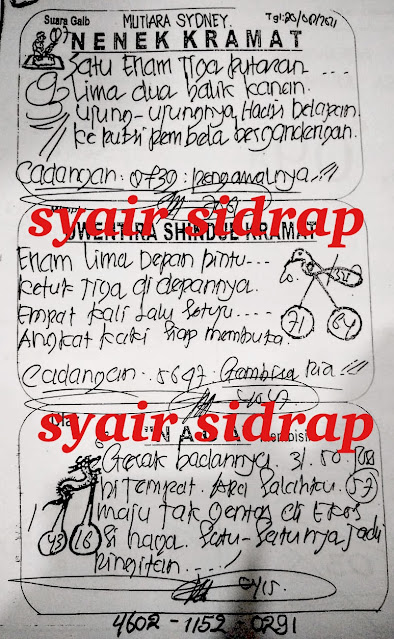 Suara Gaib
MUTIARA SYDNEY.
NENEK KRAMAT
Satu Enam Tiga putaran ----
Lima dua balik kanan.
Ujung-ujungnya Hadir delapan
Ke putri pembela bergandengan.
Cadangan: 0739: pengawalnya
syair sidrap
DWENTIRA SHINDUL KRAMAT
Enam Lima Depan pintu ---
Ketuk Tiga di depannya.
Empat kali Lalu Setuju ----
Angkat kaki siap membuka.
71
64
Cadangan: 5697. Gambira Ria
syair sidrap
NAGA
Gerak badannya. 31. 50.
di Tempat. Apa Salahku. 57
maju tak gentar di EKOS
Si naga. Satu-satunya Jadi
pingitan
43
16
4602 - 1152 - 0291